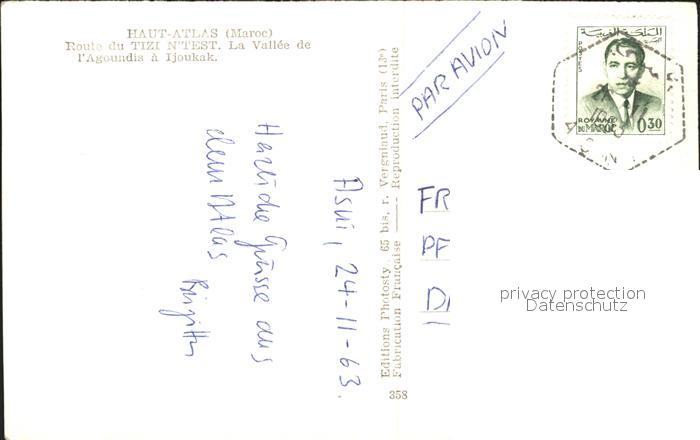 HAUT-ATLAS (Maroc)
Route du TIZI N'TEST. La Vallée de
l'Agoundis à Ijoukak.
Asni, 24-11-63.
Herzliche Grüsse aus
dem Atlas
Brigitte
Editions Photosty, 65 bis, r. Vergniaud, Paris (13e)
Fabrication Française —— Reproduction interdite
358
PAR AVION
FR
PF
DI
المملكة المغربية
POSTES
ROYAUME
DU MAROC
0,30
privacy protection
Datenschutz